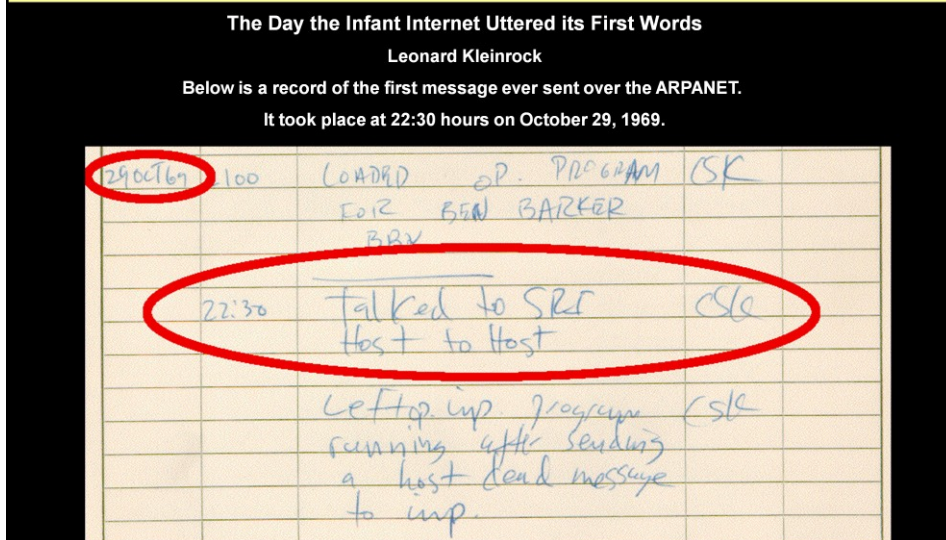 The Day the Infant Internet Uttered its First Words
Leonard Kleinrock
Below is a record of the first message ever sent over the ARPANET.
It took place at 22:30 hours on October 29, 1969.
29OCT69 2100 LOADED OP. PROGRAM CSK
FOR BEN BARKER
BBN
22:30 Talked to SRI CSK
Host to Host
Left op. imp. program CSK
running after sending
a host dead message
to imp.